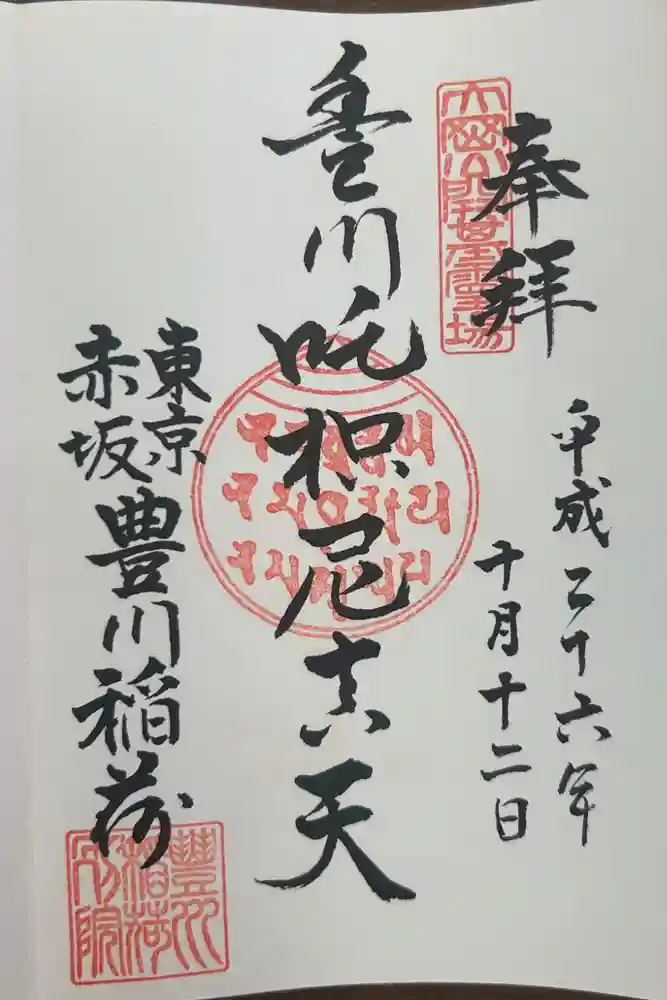 奉拝
平成二十六年
十月十二日
豊川吒枳尼真天
東京
赤坂
豊川稲荷
豊川
稲荷
別院